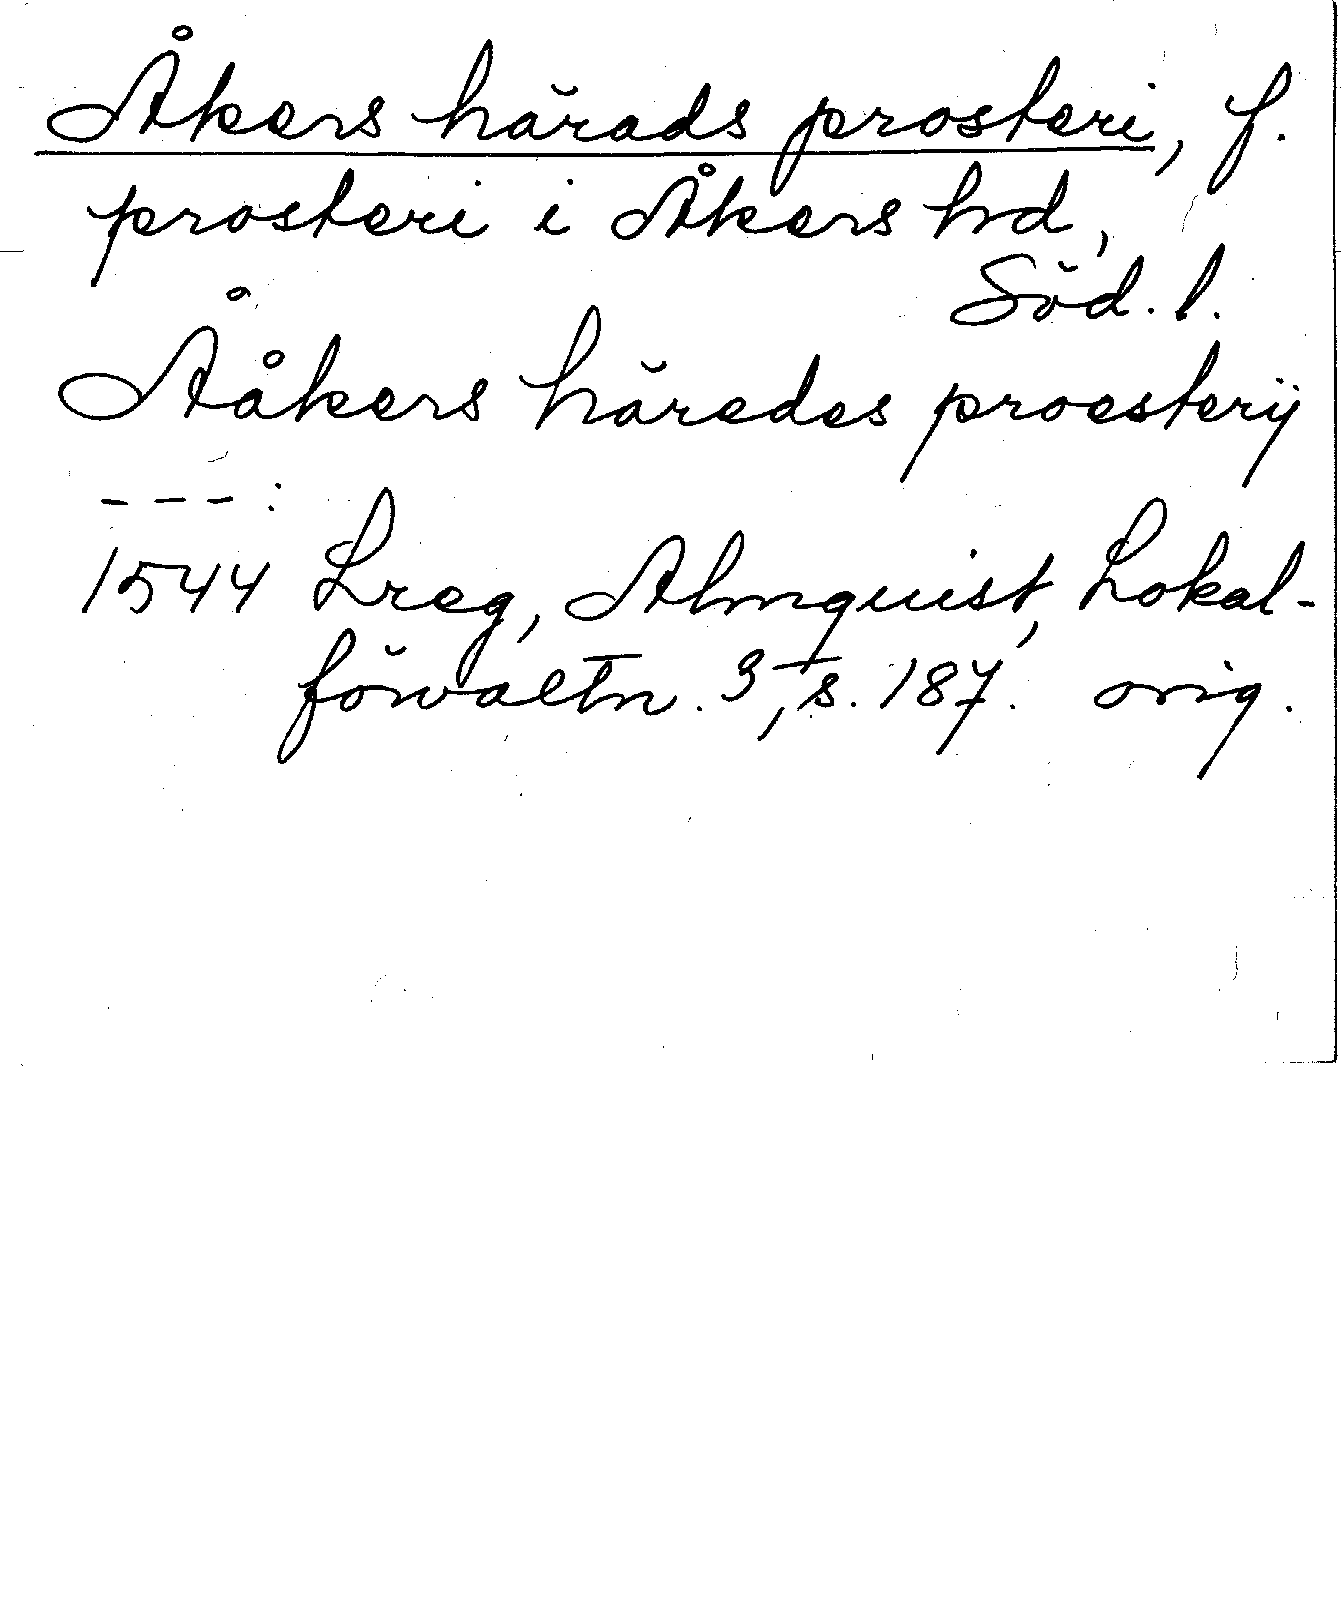 Åkers härads prosteri, f.
prosteri i Åkers hd,
Söd. l.
Ååkers häredes proesterij
---:
1544 Lreg, Almquist, Lokal-
förvaltn. 3, s. 187. orig.